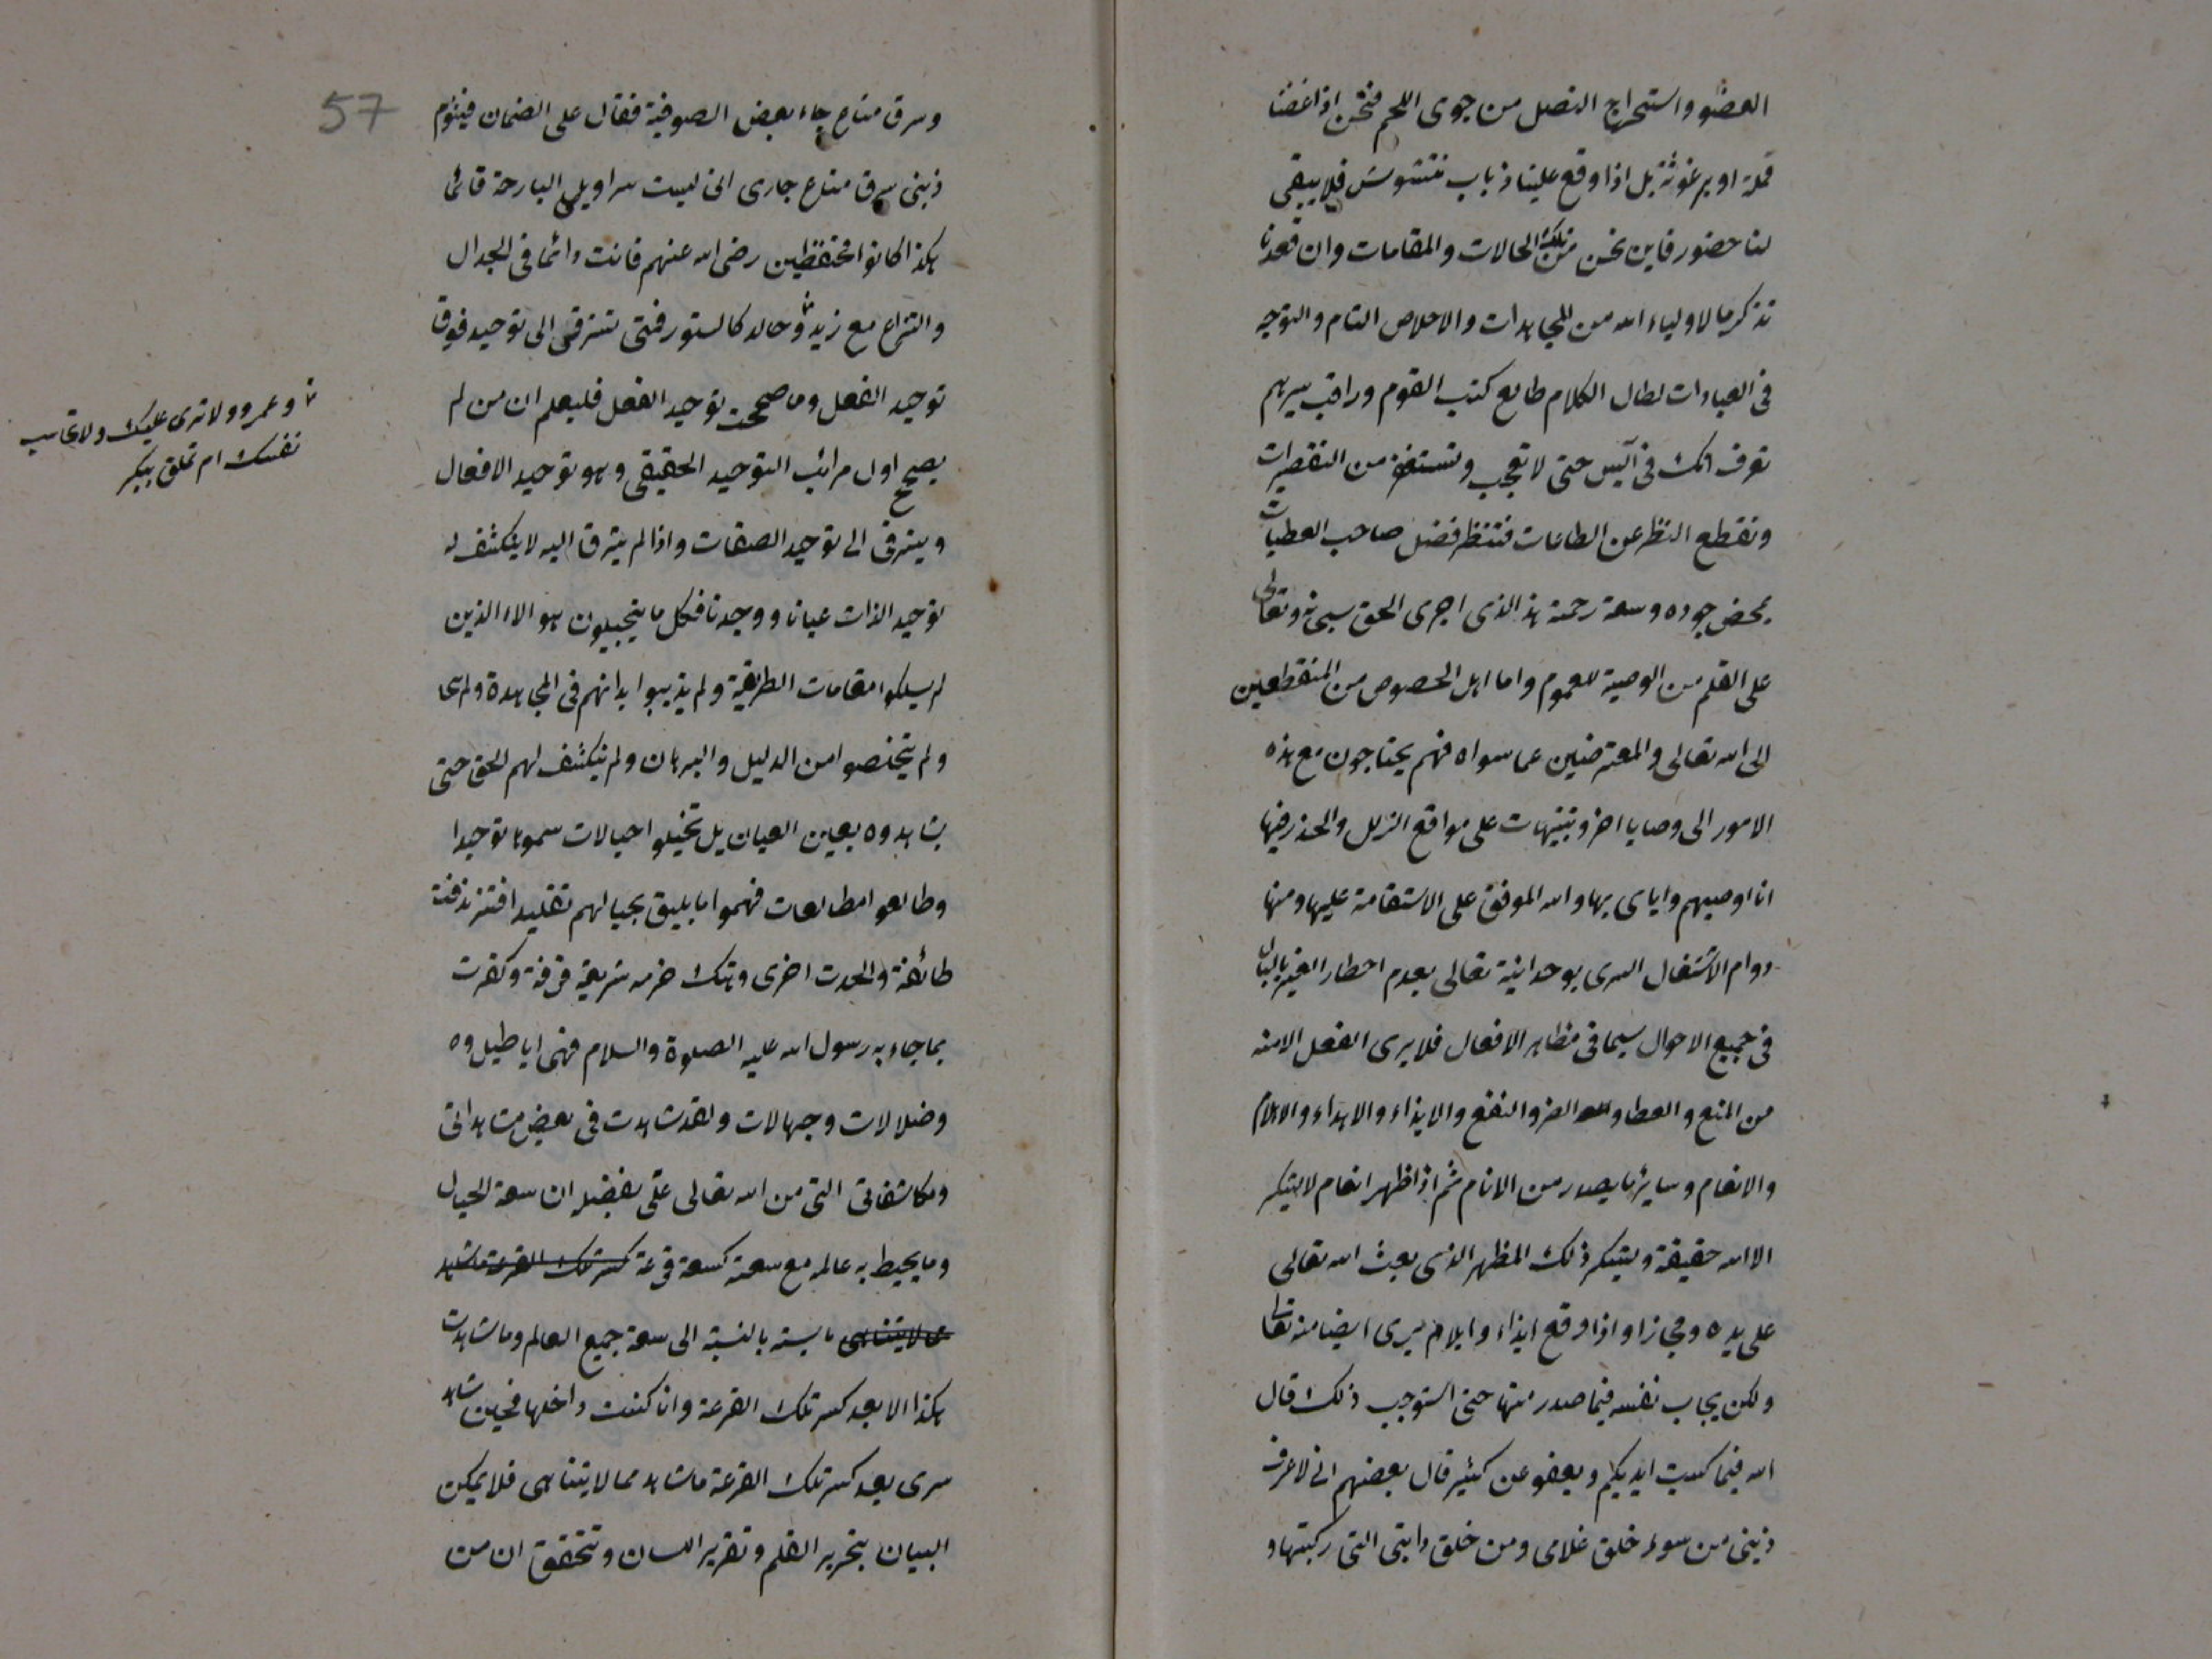 العضو واستخراج النصل من جوى اللحم فنحن اذا عضنا
قملة او برغوثة بل اذا وقع علينا ذباب نتشوش فلا يبقى
لنا حضور فاين نحن من تلك الحالات والمقامات وان قعدنا
نذكر ما لاولياء الله من المجاهدات والاخلاص التام والتوجه
فى العبادات لطال الكلام طالع كتب القوم وراقب سيرهم
تعرف انك فى ليس حتى لا تعجب وتستغفر من التقصيرات
وتقطع النظر عن الطاعات فتنتظر فضل صاحب العطيات
بمحض جوده وسعة رحمة هذا الذى اجرى الحق سبحانه وتعالى
على القلم من الوصية للعموم واما اهل الخصوص من المنقطعين
الى الله تعالى والمعترضين عما سواه فهم يحتاجون مع هذه
الامور الى وصايا اخر وتنبيهات على مواقع الزلل والحذر فيها
انا اوصيهم واياى بها والله الموفق على الاستقامة عليها ومنها
دوام الاشتغال السرى بوحدانية تعالى بعدم اخطار الغير بالبال
فى جميع الاحوال سيما فى مظاهر الافعال فلا يرى الفعل الا منه
من المنع والعطا والضر والنفع والايذاء والاهداء والايلام
والانعام وساير ما يصدر من الانام ثم اذا ظهر انعام لا يشكر
الا الله حقيقة ويشكر ذلك المظهر الذى بعث الله تعالى
على يده ومجازا واذا وقع ايذاء وايلام يرى ايضا منه تعالى
ولكن يحاسب نفسه فيما صدر منها حتى استوجب ذلك قال
الله فبما كسبت ايديكم ويعفو عن كثير قال بعضهم انى لاعرف
ذنبى من سوء خلق غلامى ومن خلق دابتى التى ركبتها و
57
وسرق متاع جاء بعض الصوفية فقال على الضمان فبشؤم
ذنبى سرق متاع جارى انى لبست سراويلى البارحة قائما
هكذا كانوا محتفظين رضى الله عنهم فانت دائما فى الجدال
والنزاع مع زيد وخالد كالسنور فمتى تترقى الى توحيد فوق
توحيد الفعل وما صححت توحيد الفعل فليعلم ان من لم
يصحح اول مراتب التوحيد الحقيقى وهو توحيد الافعال
ويترقى الى توحيد الصفات واذا لم يترق اليه لا ينكشف له
توحيد الذات عيانا ووجدنا فكل ما يتخيلون هؤالاء الذين
لم يسلكوا مقامات الطريقة ولم يذيبوا ابدانهم فى المجاهدة
ولم يتخلصوا من الدليل والبرهان ولم ينكشف لهم الحق حتى
يشاهدوه بعين العيان بل تخيلوا خيالات سموها توحيدا
وطالعوا مطالعات فهموا ما يليق بخيالهم تقليدا فتزندقت
طائفة والحدت اخرى وهتك حرمه شريعة فرقة وكفرت
بما جاء به رسول الله عليه الصلوة والسلام فهى اباطيل
وضلالات وجهالات ولقد شاهدت فى بعض مشاهداتى
ومكاشفاتى التى من الله تعالى على بفضله ان سعة الخيال
وما يحيط به عالمه مع سعته كسعة قرعة كسر تلك القرعة ما شاهد
مما لا يتناهى يابسة بالنسبة الى سعة جميع العالم وما شاهدت
هكذا الا بعد كسر تلك القرعة وانا كنت داخلها فحين شاهد
سرى بعد كسر تلك القرعة ما شاهد مما لا يتناهى فلا يمكن
البيان بتحرير القلم وتقرير اللسان وتحقق ان من
وعمرو ولا ترى عليك ولا تحاسب
نفسك ام تعلق ببكر